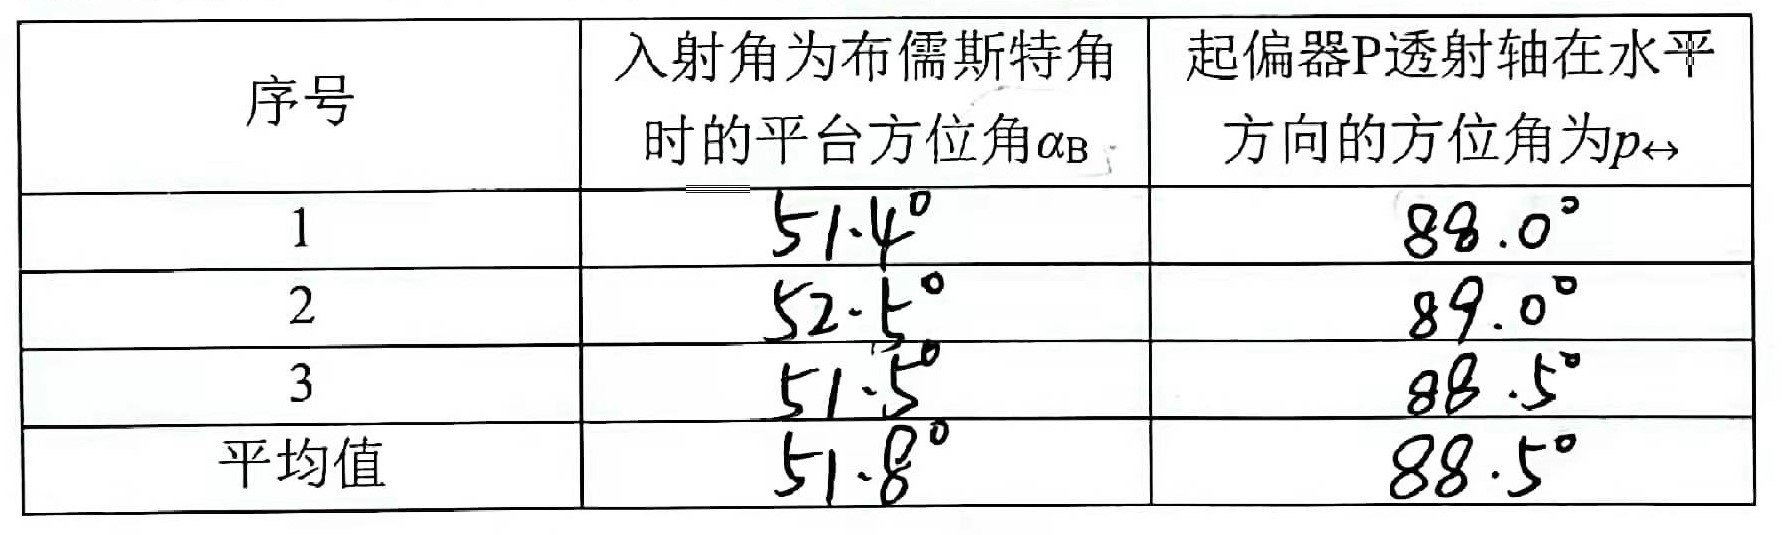 序号
入射角为布儒斯特角
时的平台方位角αB
起偏器P透射轴在水平
方向的方位角为p↔
1 51.4° 88.0°
2 52.5° 89.0°
3 51.5° 88.5°
平均值 51.8° 88.5°